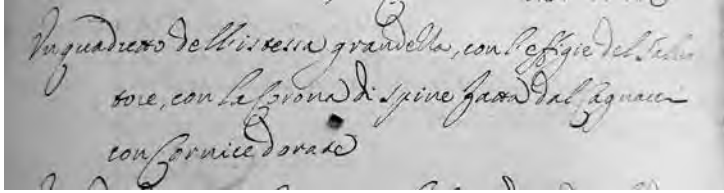 Un quadretto dell'istessa grandezza, con l'effigie del Salva
tore, con la Corona di spine fatta dal Cagnacci
con Cornice dorata